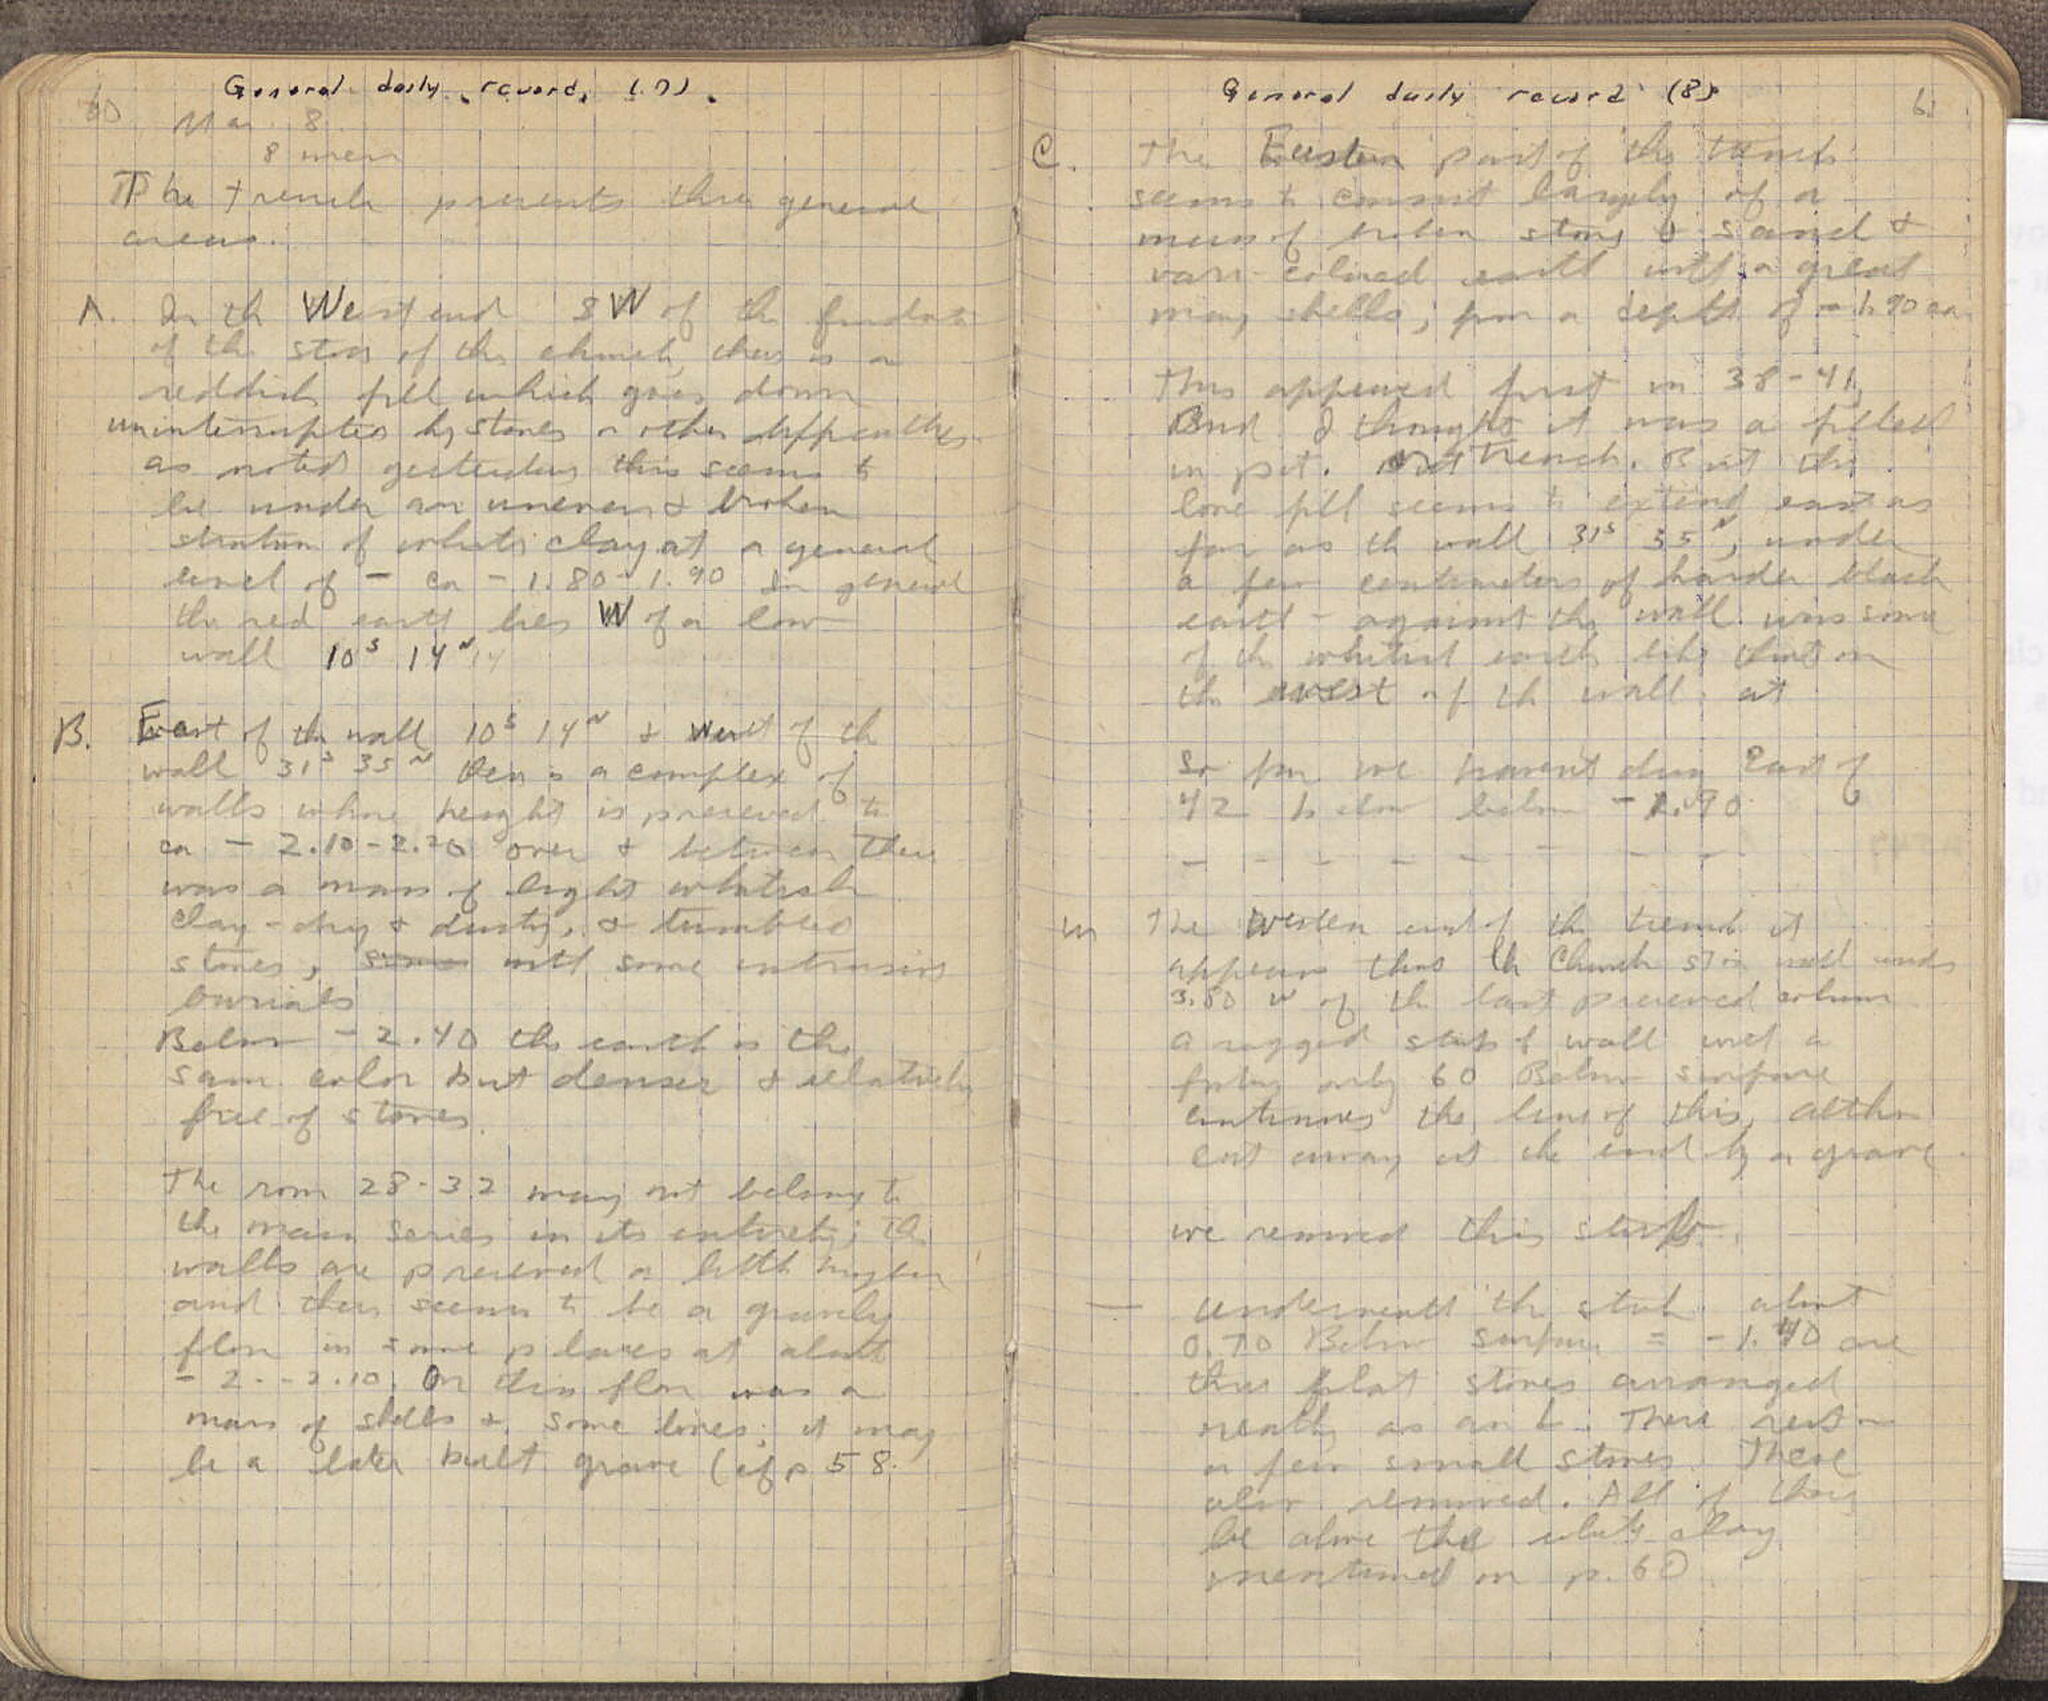 General daily record, (7).
60
Mar 8
8 men
The trench presents three general
areas.
A. In the West end SW of the
of the stoa of the church, there is a
reddish fill which goes down
uninterrupted by stones or other
as noted yesterday this seems to
be under an uneven & broken
stratum of white clay at a general
level of - ca - 1.80 - 1.90 In general
the red earth lies W of a low
wall 10S 14N
B. East of the wall 10S 14N & west of the
wall 31S 35N there is a complex of
walls whose height is preserved to
ca - 2.10 - 2.20 over & between them
was a mass of light whitish
clay - dry & dusty, & tumbled
stones, with some intrusive
burials
Below - 2.40 the earth is the
same color but denser & relatively
free of stones.
The room 28-32 may not belong to
the main series in its entirety; the
walls are preserved a little higher
and there seems to be a gravely
floor in some places at about
- 2. - 2.10. On this floor was a
mass of shells & some bones; it may
be a later built grave (cf p 58.
General daily record (8)
61
C. The Eastern part of the trench
seems to consist largely of a
mass of broken stones & sand &
vari-colored earth with a great
many shells; from a depth of - 1.90 ca.
This appeared first in 38-41,
And I thought it was a filled
in pit. or trench. But this
loose fill seems to extend east as
far as the wall 31S 35N, under
a few centimeters of harder black
earth - against the wall was some
of the whitest earth like that on
the west of the wall at
So far we haven't dug East of
42 below - 1.90
- - - - - - - -
in The western end of the trench it
appears that the Church stoa wall ends
3.50 W of the last preserved column
a ragged strip of wall with a
footing only 60 Below surface
continues the line of this, altho
cut away at the end by a grave.
we removed this strip.
— Underneath the about
0.70 Below surface = - 1.40 are
three flat stones arranged
neatly as an L. These rest on
a few small stones. These
also removed. All of these
be above the white clay
mentioned on p. 60